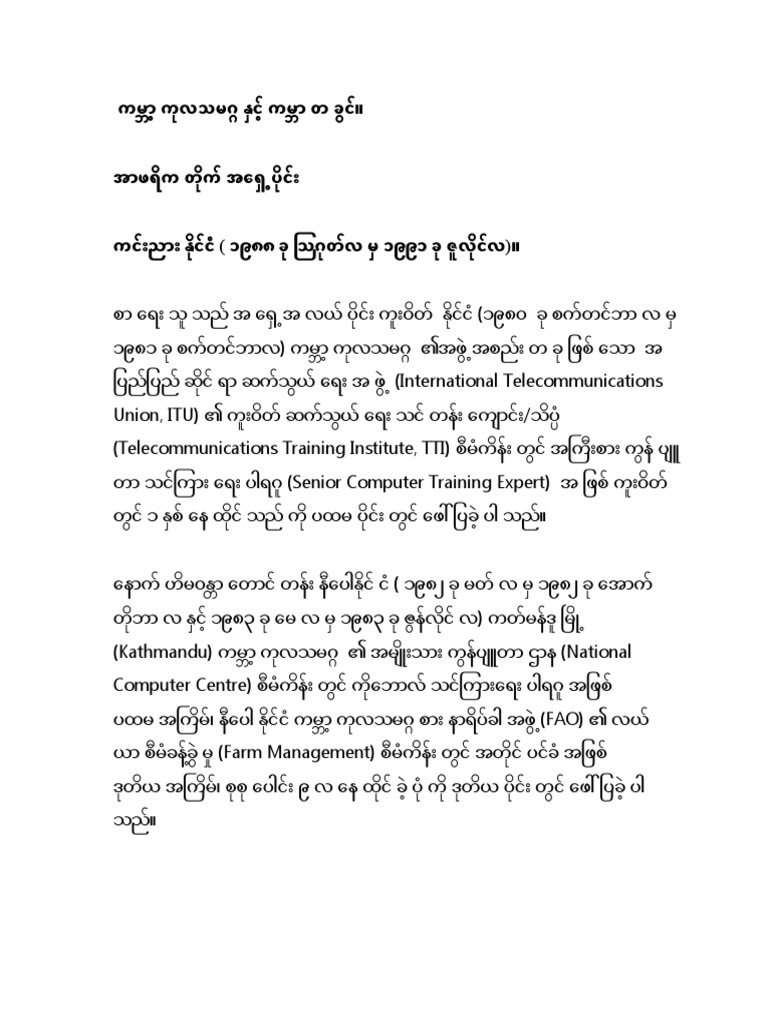 ကမ္ဘာ့ ကုလသမဂ္ဂ နှင့် ကမ္ဘာ တ ခွင်။
အာဖရိက တိုက် အရှေ့ပိုင်း
ကင်းညား နိုင်ငံ ( ၁၉၈၈ ခု သြဂုတ်လ မှ ၁၉၉၁ ခု ဇူလိုင်လ)။
စာ ရေး သူ သည် အ ရှေ့အ လယ် ပိုင်း ကူးဝိတ် နိုင်ငံ (၁၉၈၀ ခု စက်တင်ဘာ လ မှ
၁၉၈၁ ခု စက်တင်ဘာလ) ကမ္ဘာ့ ကုလသမဂ္ဂ ၏အဖွဲ့အစည်း တ ခု ဖြစ် သော အ
ပြည်ပြည် ဆိုင် ရာ ဆက်သွယ် ရေး အ ဖွဲ့ (International Telecommunications
Union, ITU) ၏ ကူးဝိတ် ဆက်သွယ် ရေး သင် တန်း ကျောင်း/သိပ္ပံ
(Telecommunications Training Institute, TTI) စီမံကိန်း တွင် အကြီးစား ကွန် ပျူ
တာ သင်ကြား ရေး ပါရဂူ (Senior Computer Training Expert) အ ဖြစ် ကူးဝိတ်
တွင် ၁ နှစ် နေ ထိုင် သည် ကို ပထမ ပိုင်း တွင် ဖေါ်ပြခဲ့ ပါ သည်။
နောက် ဟိမဝန္တာ တောင် တန်း နီပေါနိုင် ငံ ( ၁၉၈၂ ခု မတ် လ မှ ၁၉၈၂ ခု အောက်
တိုဘာ လ နှင့် ၁၉၈၃ ခု မေ လ မှ ၁၉၈၃ ခု ဇွန်လိုင် လ) ကတ်မန်ဒူ မြို့
(Kathmandu) ကမ္ဘာ့ ကုလသမဂ္ဂ ၏ အမျိုးသား ကွန်ပျူတာ ဌာန (National
Computer Centre) စီမံကိန်း တွင် ကိုဘောလ် သင်ကြားရေး ပါရဂူ အဖြစ်
ပထမ အကြိမ်၊ နီပေါ နိုင်ငံ ကမ္ဘာ့ ကုလသမဂ္ဂ စား နာရိပ်ခါ အဖွဲ့ (FAO) ၏ လယ်
ယာ စီမံခန့်ခွဲ မှု (Farm Management) စီမံကိန်း တွင် အတိုင် ပင်ခံ အဖြစ်
ဒုတိယ အကြိမ်၊ စုစု ပေါင်း ၉ လ နေ ထိုင် ခဲ့ ပုံ ကို ဒုတိယ ပိုင်း တွင် ဖေါ်ပြခဲ့ ပါ
သည်။